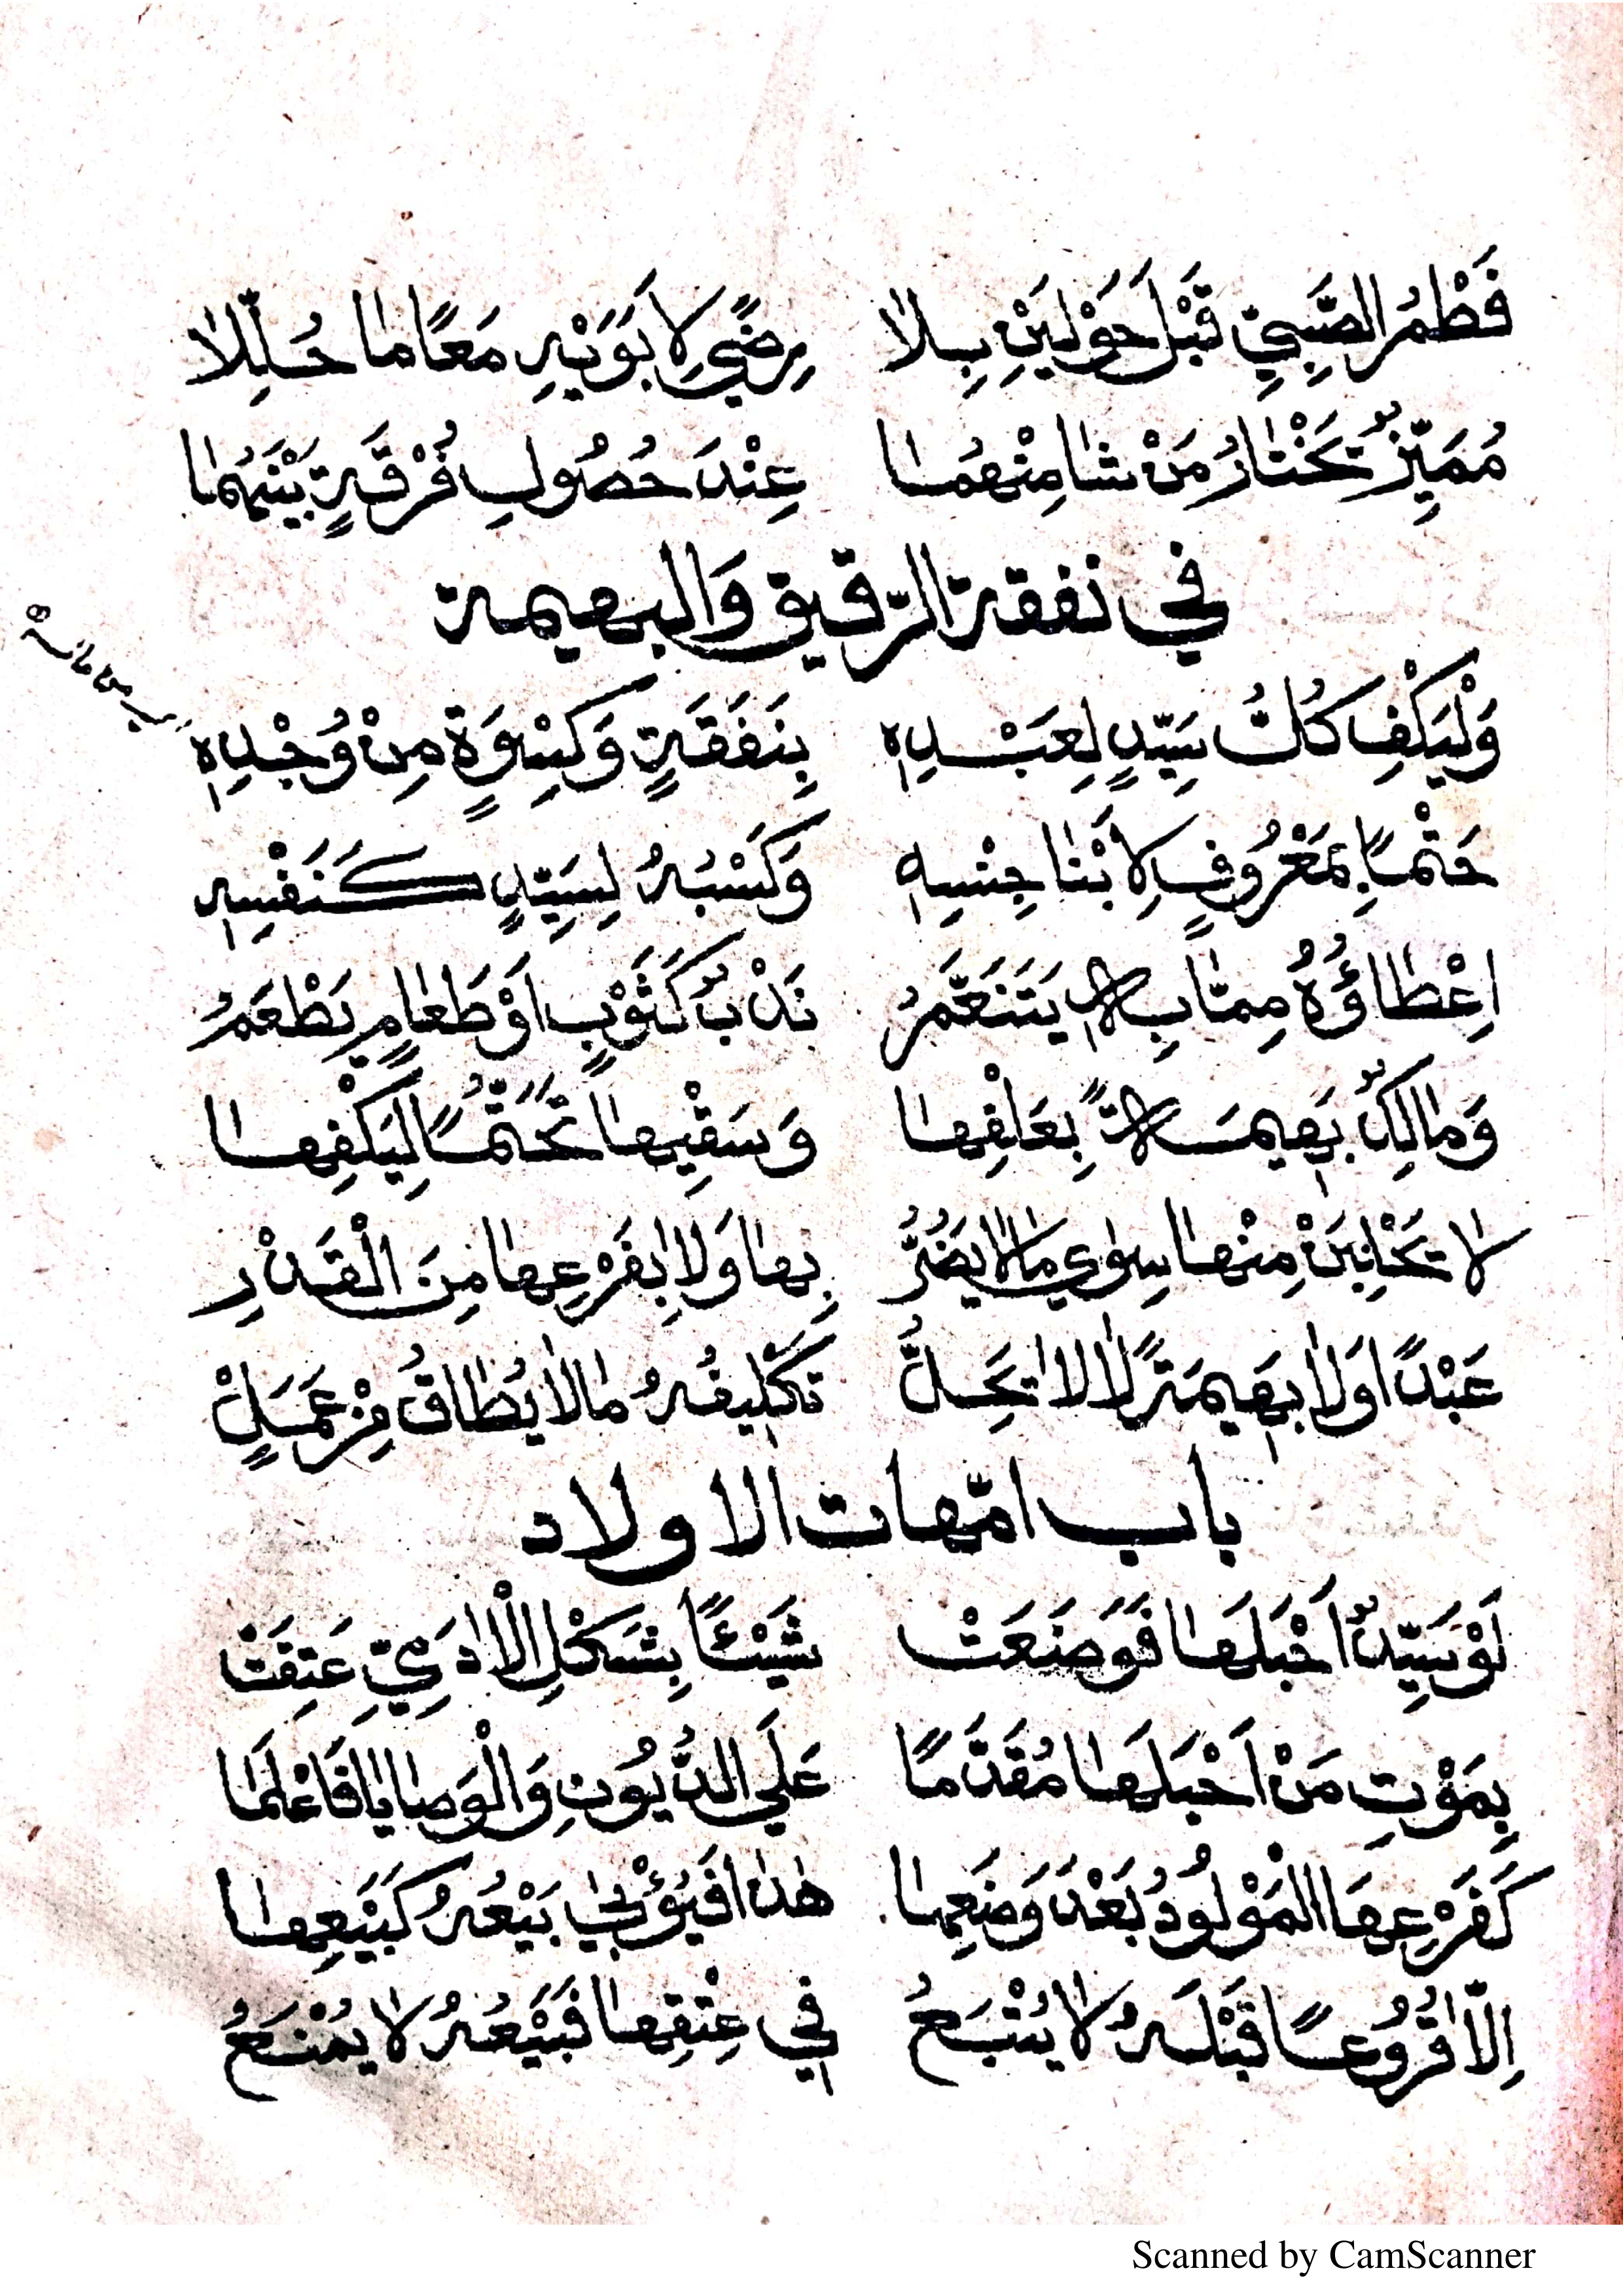 فَطْمُ الصَّبِيِّ قَبْلَ حَوْلَيْنِ بِلا رِضًي لِاَبَوَيْهِ مَعًا مَا حُلِّلَا
مُمَيِّزٌ يَخْتَارُ مَنْ شَا مِنْهُمَا عِنْدَ حُصُولِ فُرْقَةٍ بَيْنَهُمَا
في نفقة الرّقيق وَالبهيمة
وَلْيَكْفِ كُلُّ سَيِّدٍ لِعَبْدِهِ بِنَفَقَةٍ وَكِسْوَةٍ مِنْ وُجْدِهِ
حَتْمًا بِمَعْرُوفٍ لِاَبْنَا جِنْسِهِ وَكَسْبُهُ لِسَيِّدٍ كَنَفْسِهِ
اِعْطَاؤُهُ مِمَّا بِهِ يَتَنَعَّمُ نَدْبٌ كَثَوْبٍ اَوْ طَعَامٍ يَطْعَمُ
وَمَالِكٌ بَهِيمَةً بِعَلْفِهَا وَسَقْيِهَا تَحَتُّمًا لِيَكْفِهَا
لَا تَحْلِبَنْ مِنْهَا سِوٰي مَا لَا يَضُرُّ بِهَا وَلَا بِفَرْعِهَا مِنَ الْقَدْرِ
عَبْدًا وَلَا بَهِيمَةً لَا لَا تَحِلُّ تَكْلِيفُهُ مَا لَا يُطَاقُ مِنْ عَمَلٍ
باب امّهات الاولاد
لَوْ سَيِّدٌ اَحْبَلَهَا فَوَضَعَتْ شَيْئًا بِشَكْلِ الْاٰدَمِيِّ عَتِقَتْ
بِمَوْتِ مَنْ اَحْبَلَهَا مُقَدَّمًا عَلَي الدُّيُونِ وَالْوَصَايَا فَاعْلَمَا
كَفَرْعِهَا الْمَوْلُودُ بَعْدَ وَضَعِهَا هٰذَا فَيُؤْبٰي بَيْعُهُ كَبَيْعِهَا
اِلَّا فُرُوعًا قَبْلَهُ لَا يُتْبَعُ فِي عِتْقِهَا فَبَيْعُهُ لَا يُمْنَعُ
Scanned by CamScanner